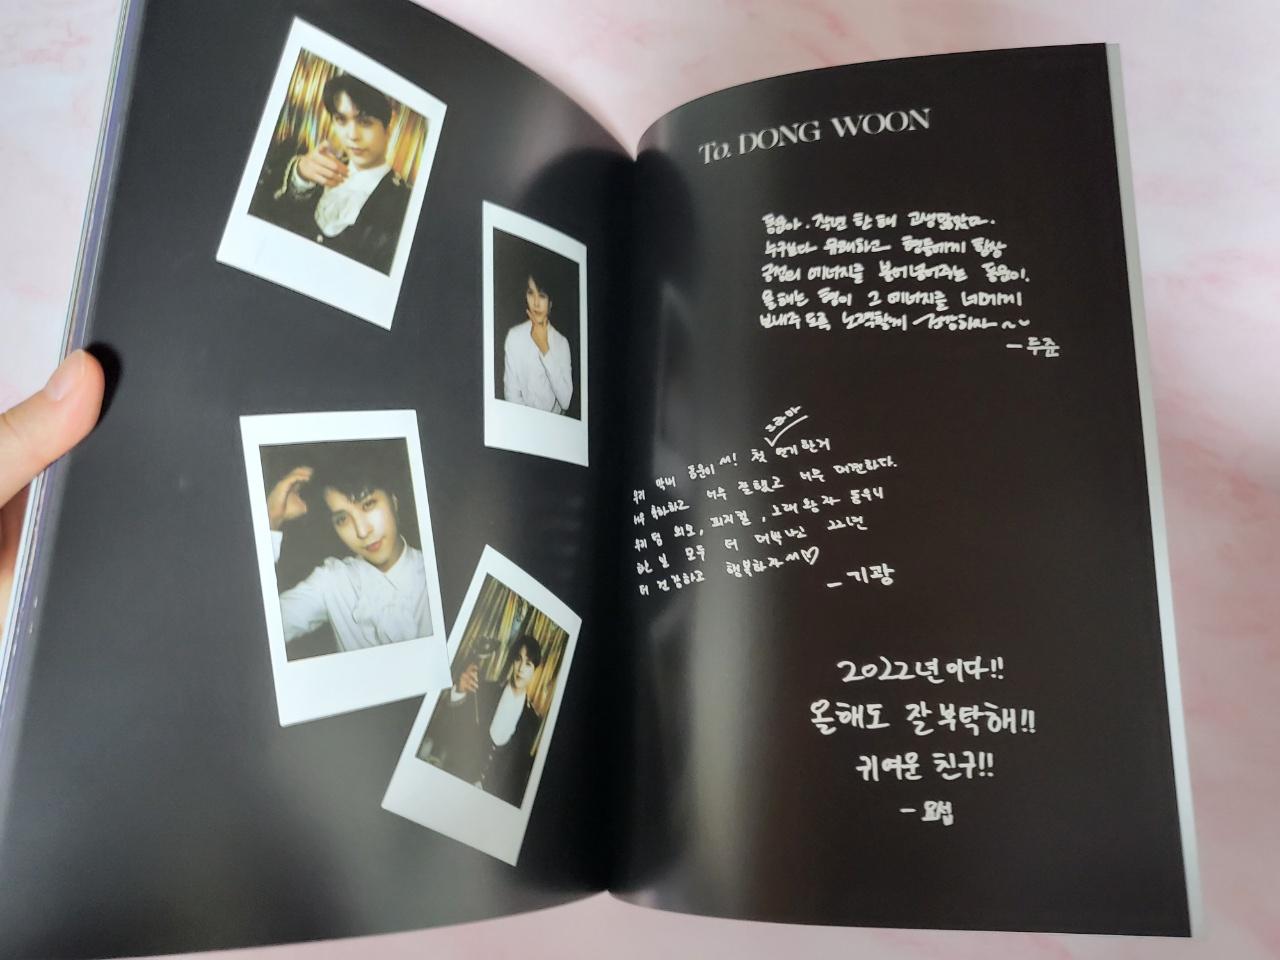 To. DONG WOON
동운아. 작년 한 해 고생많았다.
누구보다 유쾌하고 형들에게 항상
긍정의 에너지를 불어넣어주는 동운이.
올해는 형이 그 에너지를 너에게
보내주도록 노력할게 건강하자~
- 두준
드라마
우리 막내 동운이 ^^! 첫 연기한거
너무 축하하고 너무 잘했고 너무 대견하다.
우리 텀 외모, 피지컬, 노래왕자 동우니
한 보 모두 더 대박나고 22년
더 건강하고 행복하자^^♡
- 기광
2022년이다!!
올해도 잘 부탁해!!
귀여운 친구!!
- 요섭